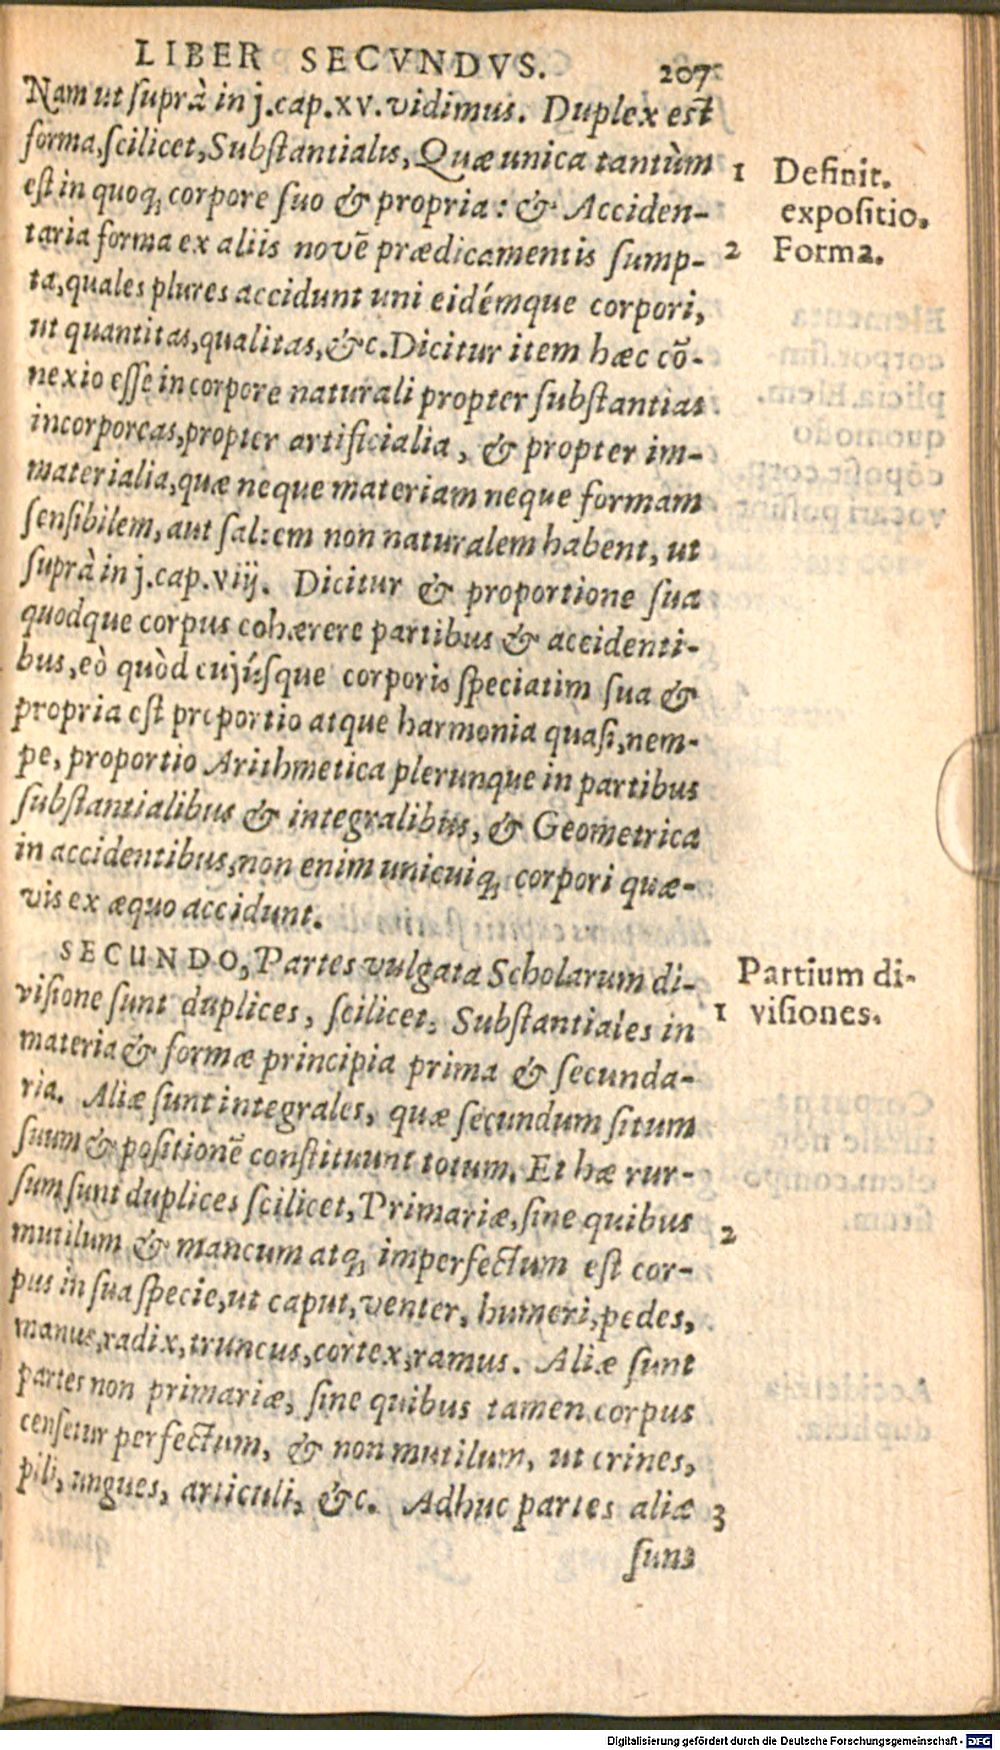 LIBER SECVNDVS. 207
Nam ut suprà in j. cap. xv. vidimus. Duplex est
forma, scilicet, Substantialis, Quæ unica tantùm
est in quoq; corpore suo & propria: & Acciden-
taria forma ex aliis novẽ prædicamentis sump-
ta, quales plures accidunt uni eidémque corpori,
ut quantitas, qualitas, &c. Dicitur item hæc cõ-
nexio esse in corpore naturali propter substantias
incorporeas, propter artificialia, & propter im-
materialia, quæ neque materiam neque formam
sensibilem, aut saltem non naturalem habent, ut
suprà in j. cap. viij. Dicitur & proportione sua
quodque corpus cohærere partibus & accidenti-
bus, eò quòd cujúsque corporis speciatim sua &
propria est proportio atque harmonia quasi, nem-
pe, proportio Arithmetica plerunque in partibus
substantialibus & integralibus, & Geometrica
in accidentibus, non enim unicuiq; corpori quæ-
vis ex æquo accidunt.
SECUNDO, Partes vulgata Scholarum di-
visione sunt duplices, scilicet, Substantiales in
materia & formæ principia prima & secunda-
ria. Aliæ sunt integrales, quæ secundum situm
suum & positionẽ constituunt totum. Et hæ rur-
sum sunt duplices scilicet, Primariæ, sine quibus
mutilum & mancum atq; imperfectum est cor-
pus in sua specie, ut caput, venter, humeri, pedes,
manus, radix, truncus, cortex, ramus. Aliæ sunt
partes non primariæ, sine quibus tamen corpus
censetur perfectum, & non mutilum, ut crines,
pili, ungues, articuli, &c. Adhuc partes aliæ
sunt
1 Definit.
expositio.
2 Forma.
Partium di-
1 visiones.
2
3
Digitalisierung gefördert durch die Deutsche Forschungsgemeinschaft - DFG